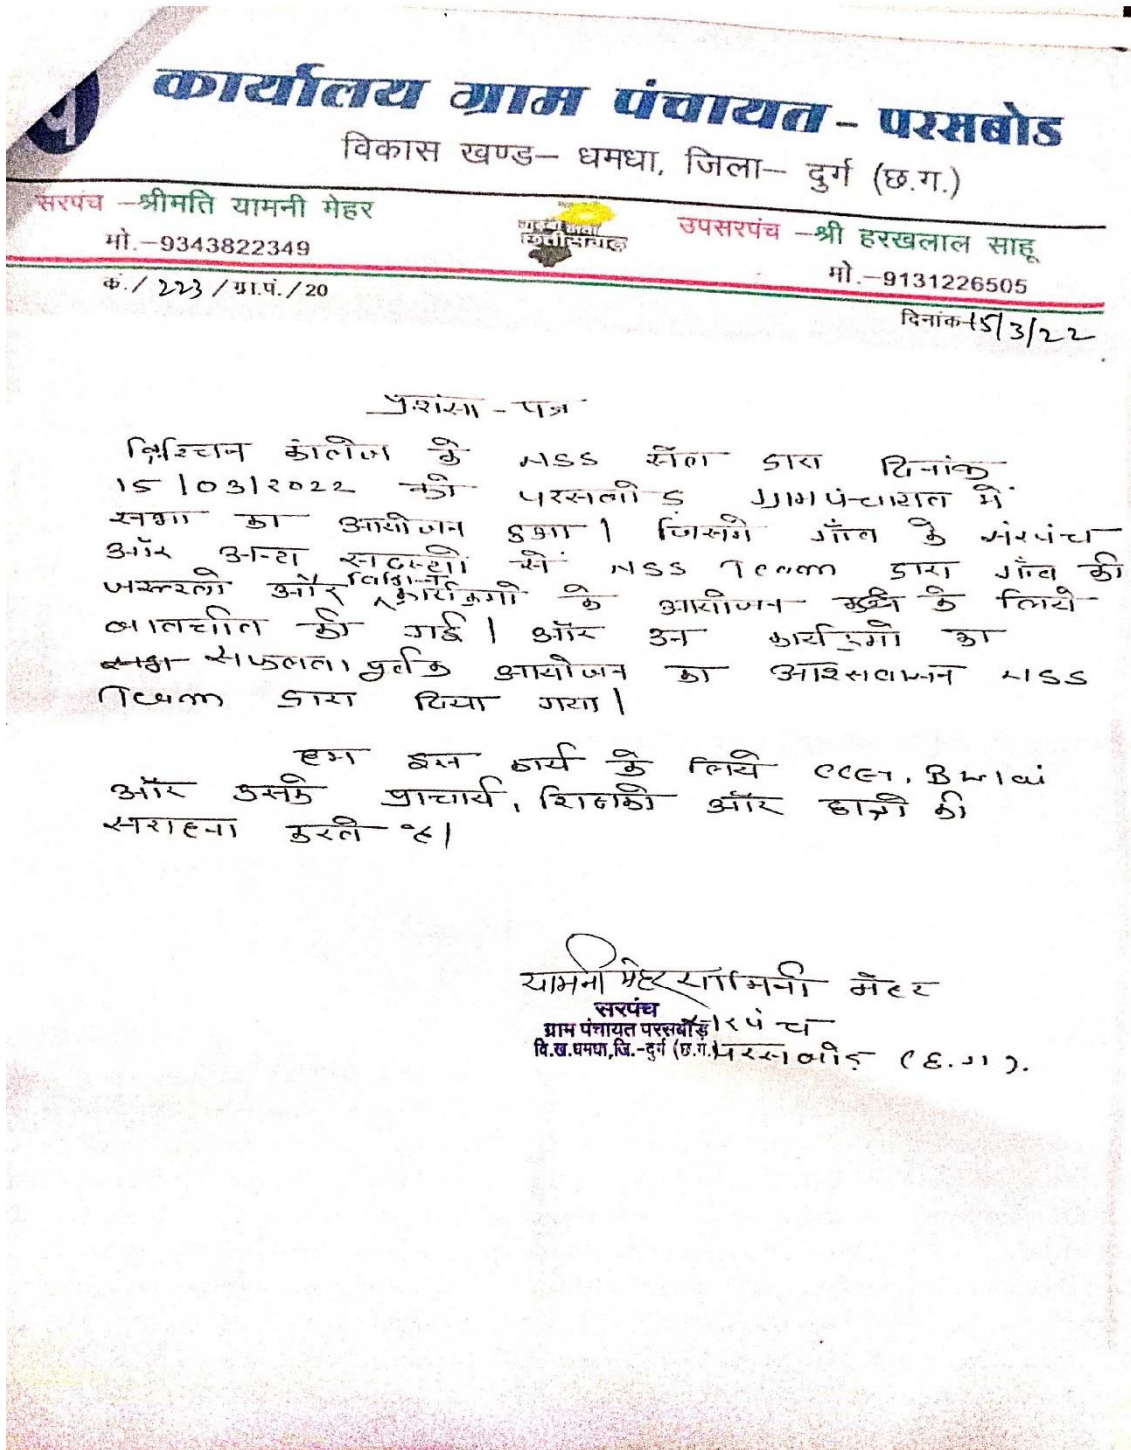 कार्यालय ग्राम पंचायत - परसबोड
विकास खण्ड– धमधा, जिला– दुर्ग (छ.ग.)
सरपंच –श्रीमति यामनी मेहर
मो.–9343822349
उपसरपंच –श्री हरखलाल साहू
मो.–9131226505
क्रं./ 223 / ग्रा.पं./20
दिनांक 15/3/22
प्रशंसा - पत्र
क्रिश्चिन कॉलेज के NSS सेल द्वारा दिनांक
15/03/2022 को परसबोड ग्रामपंचायत में
सभा का आयोजन हुआ। जिसमे गाँव के सरपंच
और अन्य सदस्यों से NSS Team द्वारा गाँव की
जरूरतो और विभिन्न कार्यक्रमो के आयोजन के लिये
बातचीत की गई। और उन कार्यक्रमो का
सफलता पूर्वक आयोजन का आश्सवासन NSS
Team द्वारा दिया गया।
हम इस कार्य के लिये CCET, Bhilai
और उसके प्राचार्य, शिक्षको और छात्रो की
सराहना करते है।
यामनी मेहर यामिनी मेहर
सरपंच
सरपंच
ग्राम पंचायत परसबोड़
वि.ख.धमधा,जि.-दुर्ग (छ.ग.)
परसबोड़ (छ.ग).